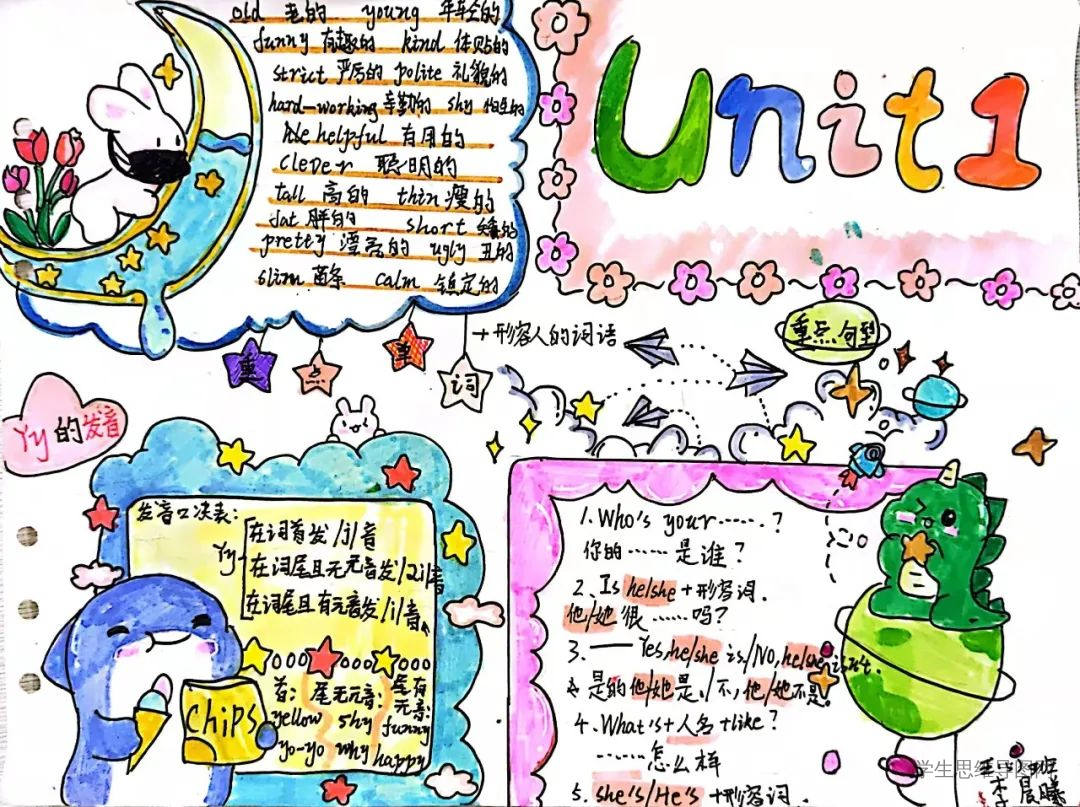 old 老的 young 年轻的
funny 有趣的 kind 体贴的
strict 严厉的 polite 礼貌的
hard-working 辛勤的 shy
helpful 有用的
clever 聪明的
tall 高的 thin 瘦的
fat 胖的 short 矮的
pretty 漂亮的 ugly 丑的
slim 苗条 calm 镇定的
Unit1
重点单词
+形容人的词语
重点句型
Yy的发音
发音口决表:
Yy
在词首发/j/音
在词尾且无元音发/ai/音
在词尾且有元音发/i/音。
首: 尾无元音: 尾有元音:
yellow shy funny
yo-yo why happy
Chips
1. Who's your ……?
你的 …… 是谁?
2. Is he/she +形容词.
他/她 很 …… 吗?
3. — Yes, he/she is./No, he/she isn't.
是的他/她是./不,他/她不是.
4. What's+人名+like?
…… 怎么样
5. she's/He's +形容词.
学生思维导图